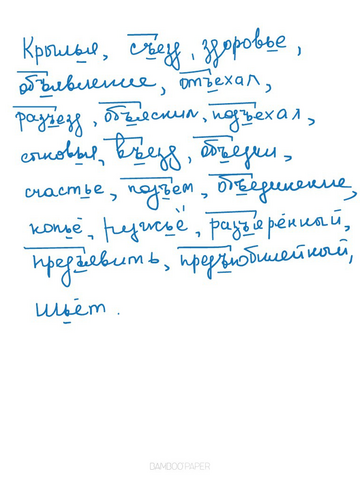 Крылья, съезд, здоровье,
объявление, отъехал,
разъезд, объяснил, подъехал,
сыновья, въезд, объедки,
счастье, подъём, объединение,
копьё, ружьё, разъярённый,
предъявить, предъюбилейный,
шьёт.
BAMBOO PAPER